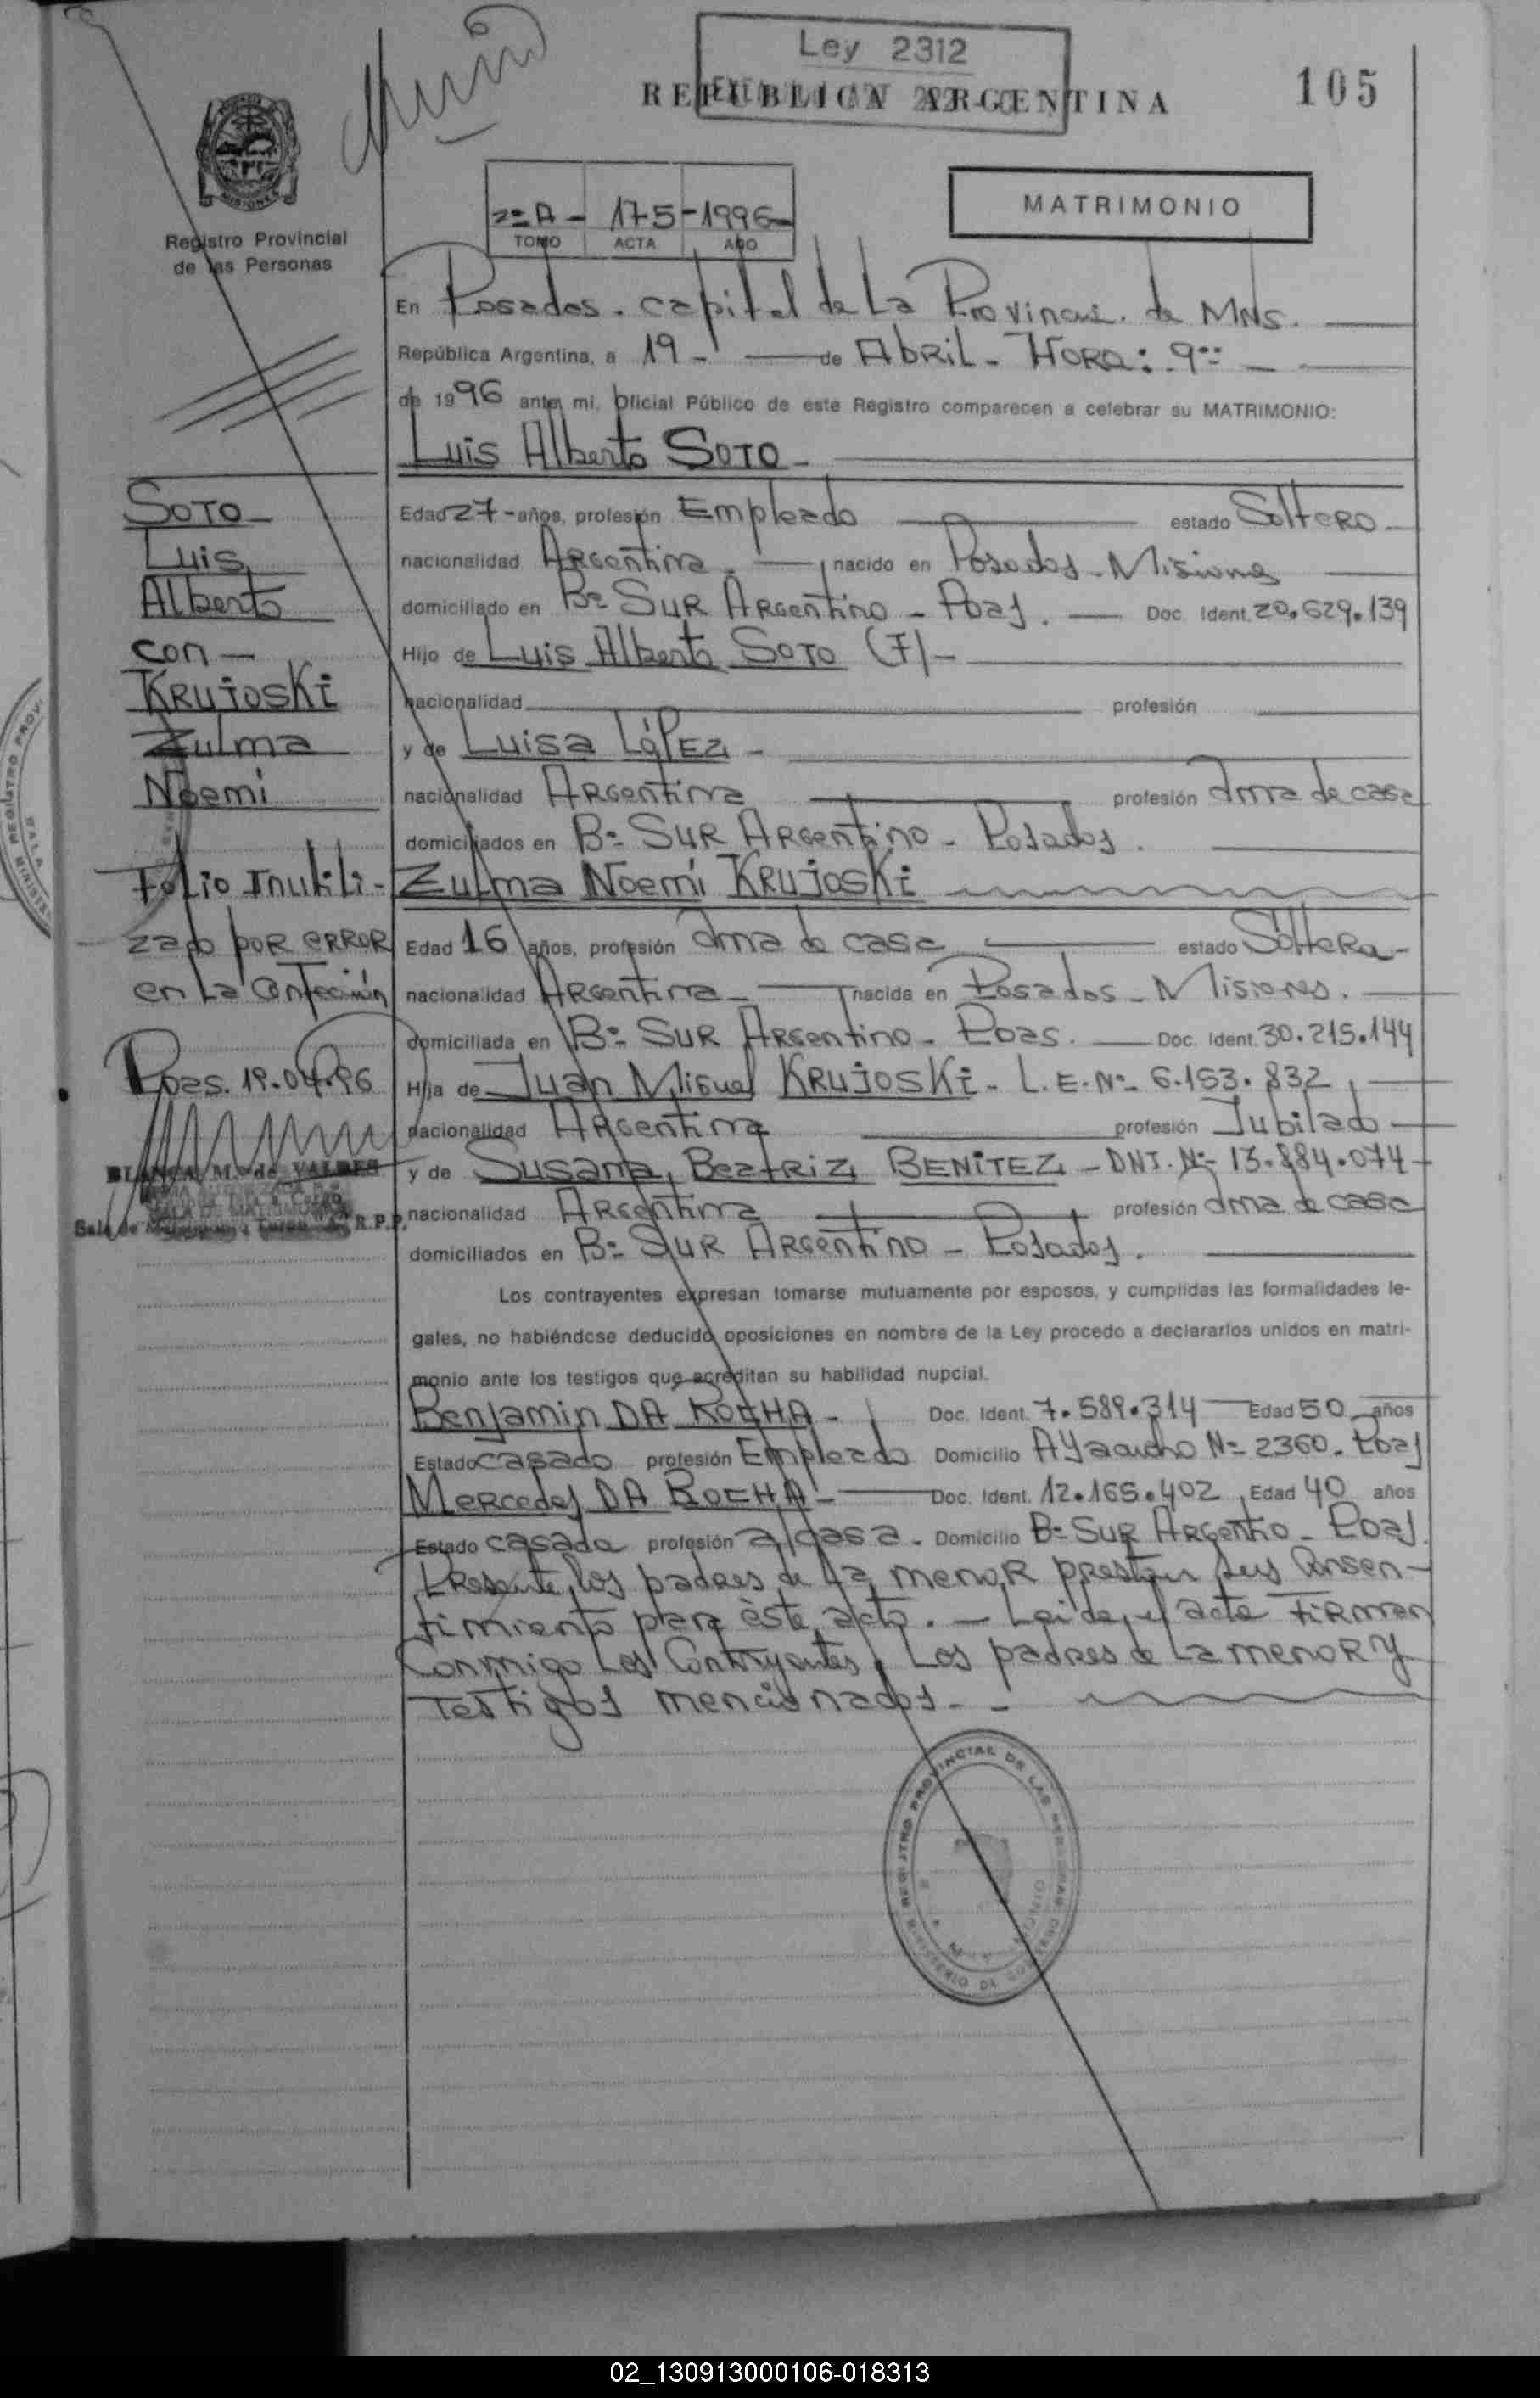 Ley 2312
REPUBLICA ARGENTINA
105
MISIONES
Registro Provincial
de las Personas
2º A - 175 - 1996 -
TOMO ACTA AÑO
MATRIMONIO
En Posadas. capital de La Provincia. de MNS.
República Argentina, a 19 - de Abril - HORA: 9:
de 1996 ante mi, Oficial Público de este Registro comparecen a celebrar su MATRIMONIO:
Luis Alberto SOTO -
Edad 27 - años, profesión Empleado estado Soltero -
nacionalidad Argentina - nacido en Posadas - Misiones
domiciliado en Bº SUR Argentino - Pdas. Doc. Ident. 20.629.139
Hijo de Luis Alberto SOTO (F) -
nacionalidad profesión
y de Luisa LóPEZ -
nacionalidad Argentina profesión ama de casa
domiciliados en Bº SUR ARgentino - Posadas.
Zulma Noemí KRUJOSKi
Edad 16 años, profesión ama de casa estado Soltera -
nacionalidad Argentina - nacida en Posadas - Misiones.
domiciliada en Bº SUR Argentino - Pdas. Doc. Ident. 30.215.144
Hija de Juan Miguel KRUJOSKi - L.E.Nº 6.153.832
nacionalidad Argentina profesión Jubilado
y de Susana Beatriz BENiTEZ - DNI. Nº 13.884.074
nacionalidad Argentina profesión ama de casa
domiciliados en Bº SUR ARgentino - Posadas.
Los contrayentes expresan tomarse mutuamente por esposos, y cumplidas las formalidades le-
gales, no habiéndose deducido oposiciones en nombre de la Ley procedo a declararlos unidos en matri-
monio ante los testigos que acreditan su habilidad nupcial.
Benjamin DA ROCHA - Doc. Ident. 7.589.314 Edad 50 años
Estado casado profesión Empleado Domicilio Ayacucho Nº 2360 - Pdas
Mercedes DA ROCHA - Doc. Ident. 12.165.402 Edad 40 años
Estado casada profesión a/casa - Domicilio Bº SUR Argentino - Pdas.
Presente los padres de la menor prestan sus Consen-
timiento para éste acto. - Leida el acta Firman
Conmigo Los Contrayentes, Los padres de La menor y
testigos mencionados - -
SOTO -
Luis
Alberto
con -
KRUJOSKi
Zulma
Noemi
Folio Inutili-
zado por error
en La Confección
Pdas. 19.04.96
BLANCA M. de VALDES
SALA DE MATRIMONIOS
R.P.P.
REGISTRO PROVINCIAL DE LAS PERSONAS
MINISTERIO DE GOBIERNO
02_130913000106-018313